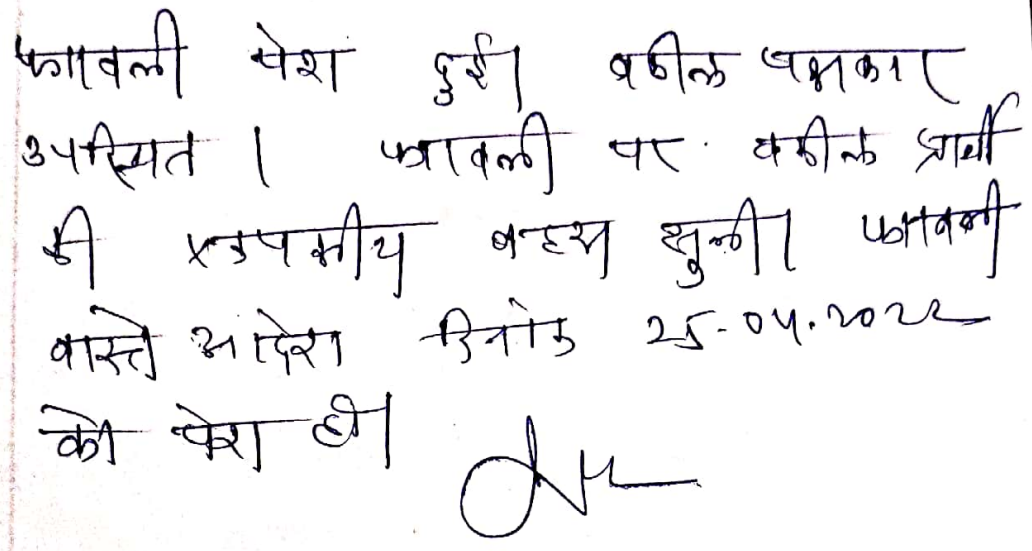 पत्रावली पेश हुई। वकील पक्षकार
उपस्थित। पत्रावली पर वकील प्रार्थी
की एकपक्षीय बहस सुनी। पत्रावली
वास्ते आदेश दिनांक 25-04.2022
को पेश हो।